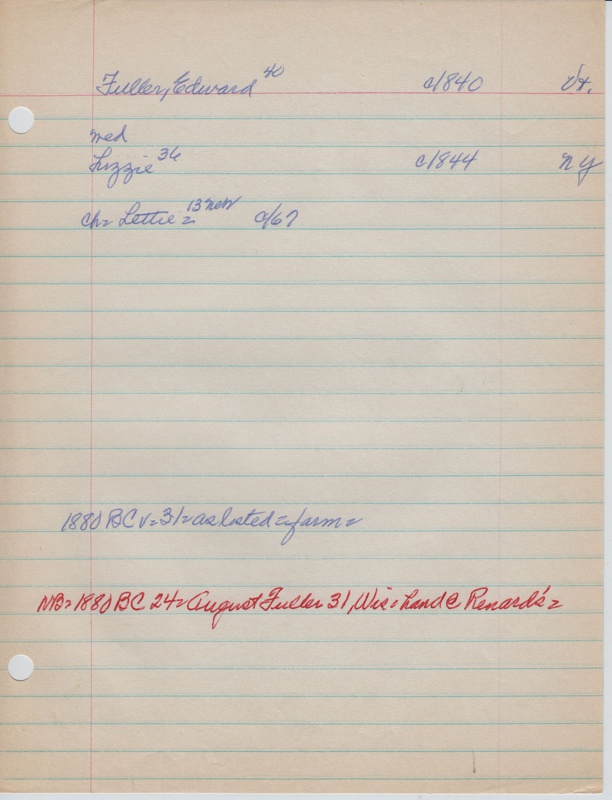 Fuller, Edward 40 c1840 Vt.
med
Lizzie 36 c1844 NY
ch= Lettie= 13 c/67
1880 BC v=31=as listed=farm=
NB=1880 BC 24=August Fuller 31, Wis=hand @ Renard's=